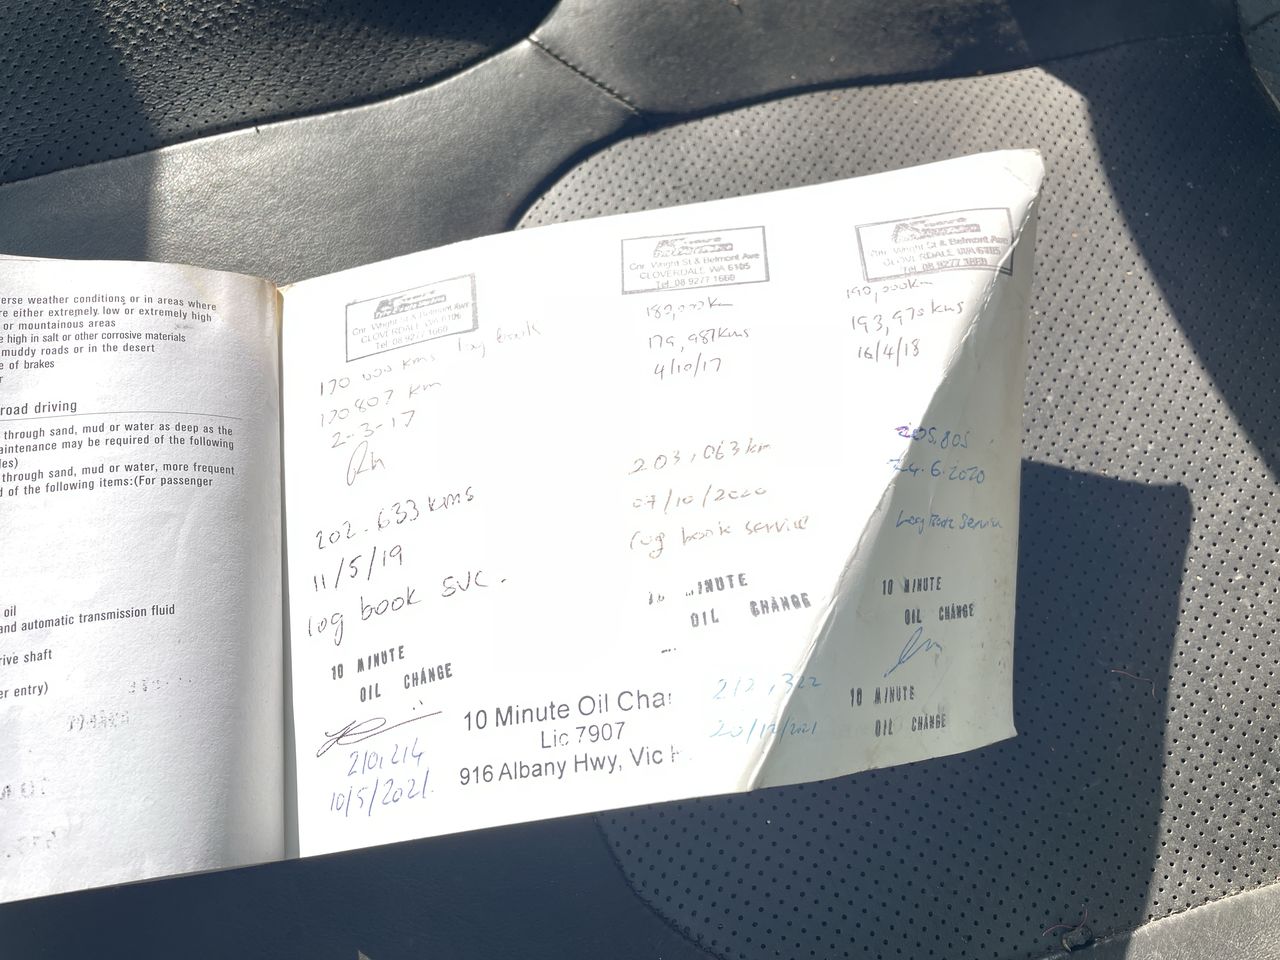 erse weather conditions or in areas where
re either extremely low or extremely high
or mountainous areas
e high in salt or other corrosive materials
muddy roads or in the desert
e of brakes
r
road driving
through sand, mud or water as deep as the
aintenance may be required of the following
les)
through sand, mud or water, more frequent
d of the following items:(For passenger
oil
and automatic transmission fluid
rive shaft
er entry)
Cnr. Wright St & Belmont Ave
CLOVERDALE WA 6105
Tel: 08 9277 1669
170 000 kms log book
170807 km
2-3-17
Cnr. Wright St & Belmont Ave
CLOVERDALE WA 6105
Tel: 08 9277 1669
180,000km
179,987kms
4/10/17
Cnr Wright St & Belmont Ave
CLOVERDALE WA 6105
Tel: 08 9277 1669
190,000km
193,970kms
16/4/18
202.633 kms
11/5/19
log book svc.
10 MINUTE
OIL CHANGE
203,063km
/10/2020
log book service
10 MINUTE
OIL CHANGE
205,805
24.6.2020
Log Book Service
10 MINUTE
OIL CHANGE
210,214
10/5/2021.
10 Minute Oil Cha
Lic 7907
916 Albany Hwy, Vic
212,322
20/12/2021
10 MINUTE
OIL CHANGE